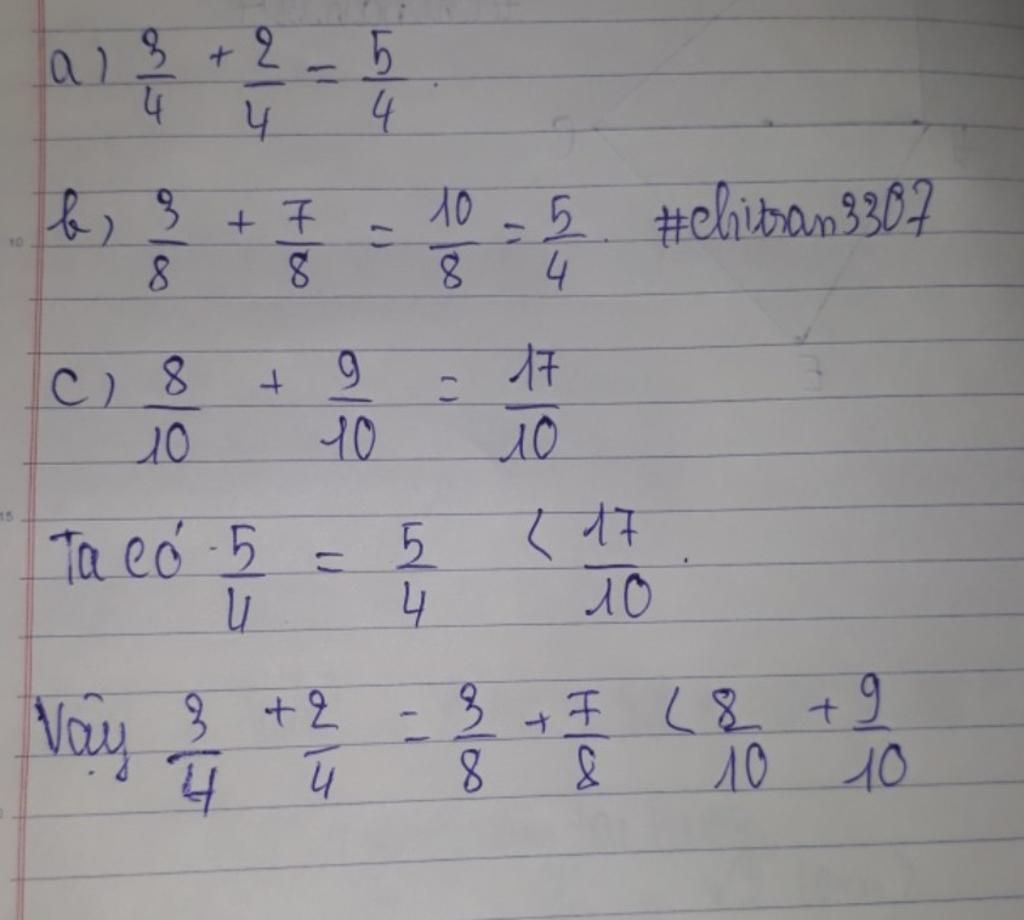 a) 3/4 + 2/4 = 5/4.
b) 3/8 + 7/8 = 10/8 = 5/4. #chitran3307
c) 8/10 + 9/10 = 17/10
Ta có 5/4 = 5/4 < 17/10.
Vậy 3/4 + 2/4 = 3/8 + 7/8 < 8/10 + 9/10